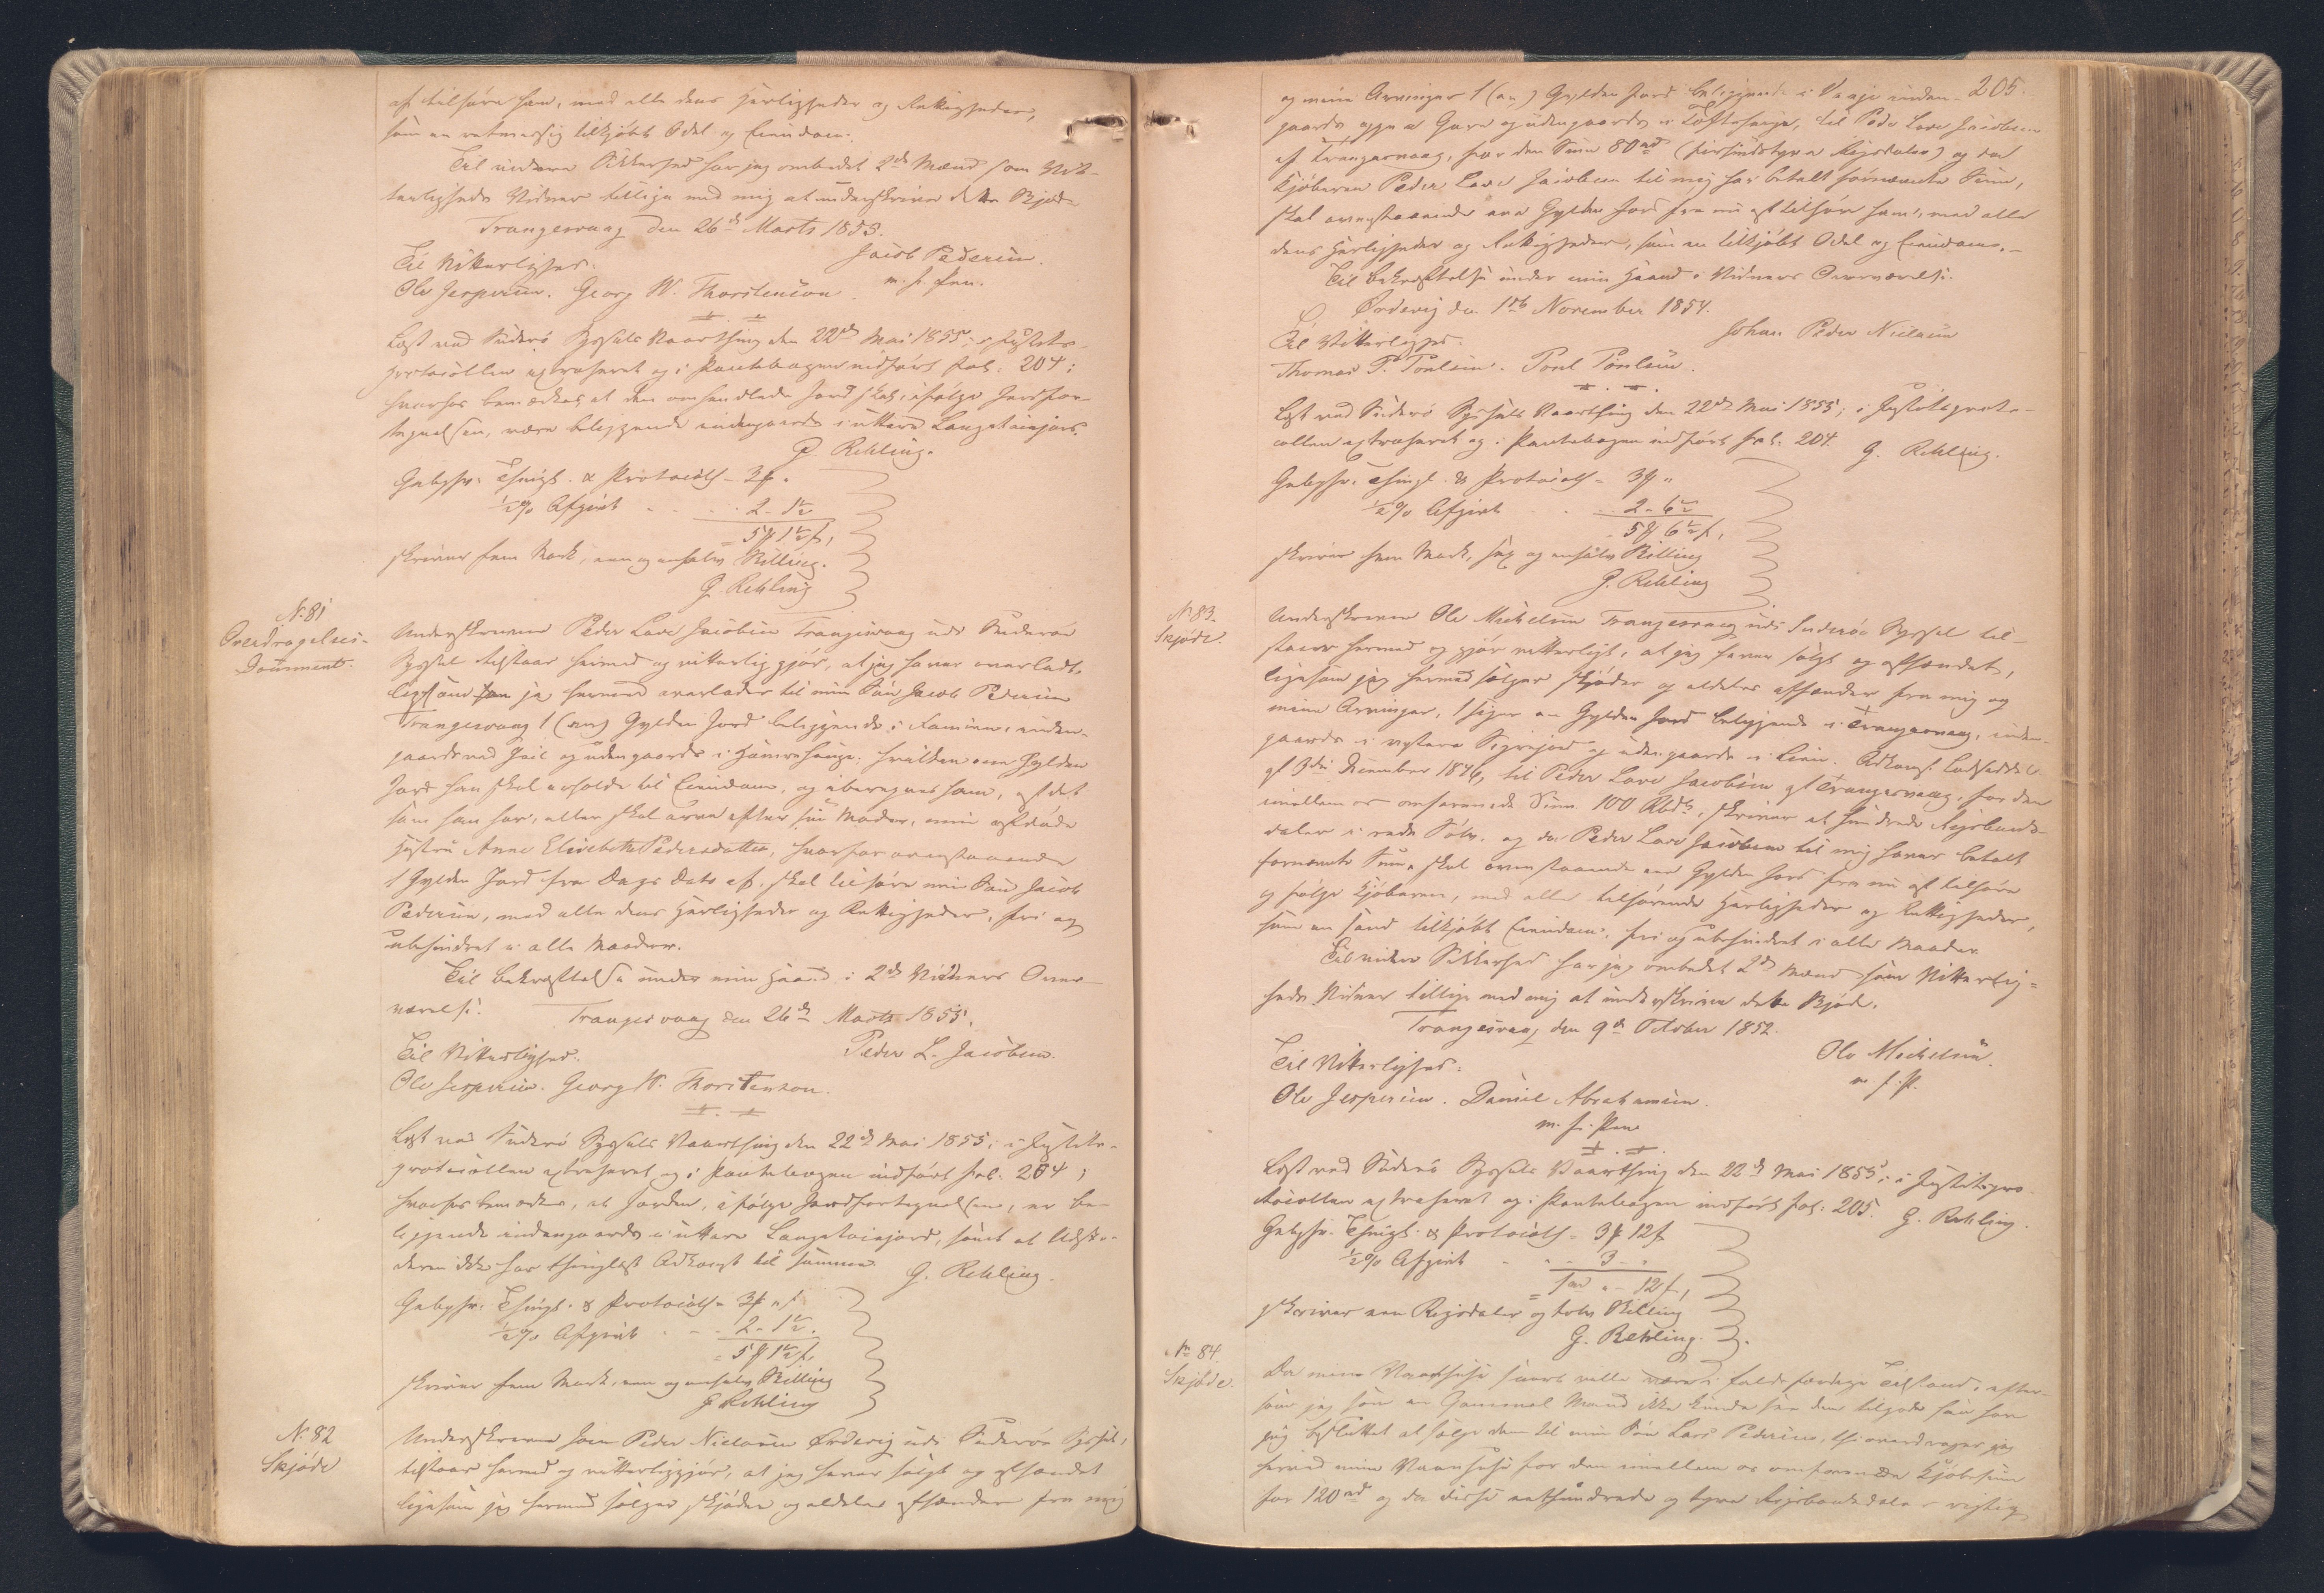 af tilhøre ham, med alle dens Herligheder og Rettigheder,
som en retmæssig tilkjøbt Odel og Eiendom.
Til videre Sikkerhed har jeg ombedet 2de Mænd som Vit-
terligheds Vidner tillige med mig at underskrive dette Skjøde
Trangesvaag den 26de Marts 1855.
Jacob Pedersen.
Til Vitterlighed. m. f. Pen.
Ole Jespersen. Georg W. Thorstenson
Læst ved Suderø Syssels Vaarthing den 22de Mai 1855; i Justits-
protocollen extraheret og i Pantebogen indført fol: 204;
hvorhos bemærkes, at den omhandlede Jord skal, ifølge Jordfor-
tegnelsen, være beliggende indengaards i uttara Langateiajord.
G. Rehling.
Gebyhr: Thingl. & Protocoll - 3 ..
½ % Afgivt .. 2 - 1½
= 5 1½ f,
skriver fem Mark, een og enhalv Skilling.
G. Rehling
N. 81
Overdragelses-
Document.
Underskrevne Peder Lave Jacobsen Trangisvaag udi Suderøe
Syssel tilstaar hermed og vitterlig gjør, at jeg haver overladt,
ligesom jeg hermed overlader til min Søn Jacob Pedersen
Trangesvaag 1 (en) Gylden Jord beliggende i Famien, inden-
gaards ved Giil og udengaards i Hamrehauge; hvilken een Gylden
Jord han skal erholde til Eiendom, og iberegnes ham, af det
som han har, eller skal arve efter sin Moder, min afdøde
Hustru Anne Elisebeth Pedersdatter, hvorfor ovenstaaende
1 Gylden Jord fra Dags Dato af, skal tilhøre min Søn Jacob
Pedersen, med alle dens Herligheder og Rettigheder, fri og
ubehindret i alle Maader.
Til Bekræftelse under min Haand i 2de Vidners Over-
værelse. Trangisvaag den 26de Marts 1855.
Til Vitterlighed. Peder L. Jacobsen.
Ole Jespersen. Georg W. Thorstenson.
Læst ved Suderø Syssels Vaarthing den 22de Mai 1855; i Justits-
protocollen extraheret og i Pantebogen indført fol: 204;
hvorhos bemærkes, at Jorden, ifølge Jordfortegnelsen, er be-
liggende indengaards i uttara Langateiajord, samt at Udste-
deren ikke har thinglæst Adkomst til samme. G. Rehling.
Gebyhr: Thingl. & Protocoll - 3
½ % Afgivt .. 2 - 1½.
= 5 1½ f,
skriver fem Mark, een og enhalv Skilling
G. Rehling
N. 82
Skjøde
Underskrevne Joen Peder Nielsen Ørdevig udi Suderøe Syssel,
tilstaar hermed og vitterliggjør, at jeg haver solgt og afhændet
ligesom jeg hermed sælger skjøder og aldeles afhænder fra mig
205.
og mine Arvinger 1 (en) Gylden Jord beliggende i Vaaje inden-
gaards oppe a Gara og udengaards i Toftehauge, til Peder Lave Jacobsen
af Trangesvaag, for den Sum 80 rd (firsindstyve Rigsdaler) og da
Kjøberen Peder Lave Jacobsen til mig har betalt fornævnte Sum,
skal ovenstaaende ene Gylden Jord fra nu af tilhøre ham, med alle
dens Herligheder og Rettigheder, som en tilkjøbt Odel og Eiendom. -
Til Bekræftelse under min Haand i Vidners Overværelse.
Ørdevig den 1ste November 1854.
Til Vitterlighed: Johan Peder Nielsen
Thomas P. Poulsen. Poul Poulsen.
Læst ved Suderø Syssels Vaarthing den 22de Mai 1855; i Justitsproto-
collen extraheret og i Pantebogen indført fol. 204.
G. Rehling.
Gebyhr. Thingl. & Protocoll - 3 "
½ % Afgivt .. 2 - 6½
5 6½ f,
skriver fem Mark, sex og enhalv Skilling
G. Rehling
N 83.
Skjøde.
Underskrevne Ole Michelsen Trangesvaag udi Suderøe Syssel til-
staaer hermed og gjør vitterligt, at jeg haver solgt og afhændet,
ligesom jeg hermed sælger skjøder og aldeles afhænder fra mig og
mine Arvinger, 1 siger en Gylden Jord beliggende i Trangesvaag, inden-
gaards i Jord og udengaards i Lien. Adkomst Lodseddel
af 3die December 1846, til Peder Lave Jacobsen af Trangesvaag, for den
imellem os omforenede Sum 100 Rbd, skriver et hundrede Rigsbank-
daler i rede Sølv. og da Peder Lave Jacobsen til mig haver betalt
fornævnte Sum, skal ovenstaaende ene Gylden Jord fra nu af tilhøre
og følge Kjøberen, med alle tilhørende Herligheder og Rettigheder,
som en sand tilkjøbt Eiendom, fri og ubehindret i alle Maader.
Til videre Sikkerhed har jeg ombedet 2de Mænd som Vitterlig-
heds Vidner tillige med mig at underskrive dette Skjøde.
Trangesvaag den 9de October 1852.
Til Vitterlighed: Ole Michelsen.
m. f. P.
Ole Jespersen. Daniel Abrahamsen.
m. f. Pen
Læst ved Suderø Syssels Vaarthing den 22de Mai 1855; i Justitspro-
tocollen extraheret og i Pantebogen indført fol: 205. G. Rehling.
Gebyhr. Thingl. & Protocoll = 3 12 f
½ % Afgivt .. 3 - "
= 1 rd " - 12 f,
skriver een Rigsdaler og tolv Skilling
G. Rehling.
N. 84.
Skjøde.
Da mine Vaarhuse snart ville været faldefærdige Tilstand, efter-
som jeg som en Gammel Mand ikke kunde see dem tilgode saa har
jeg besluttet at sælge dem til min Søn Lars Pedersen, thi overdrager jeg
herved mine Vaarhuse for den imellem os omforenede Kjøbesum
for 120 rd og da disse eethundrede og tyve Rigsbankdaler rigtig